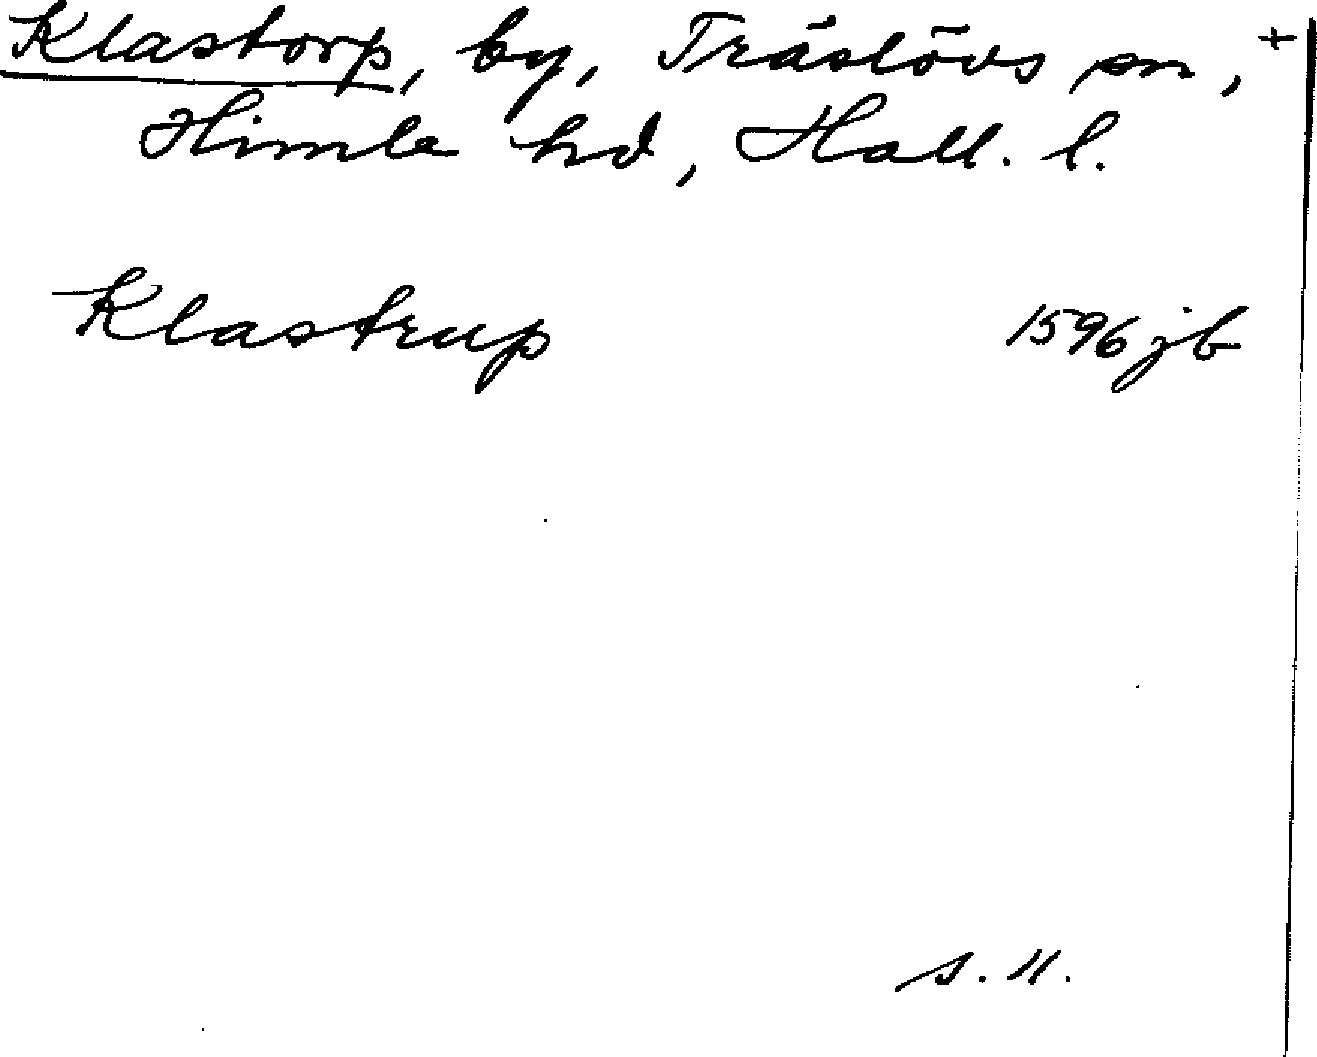 Klastorp, by, Träslövs sn, +
Himle hd, Hall. l.
Klastrup 1596 jb
s. 11.